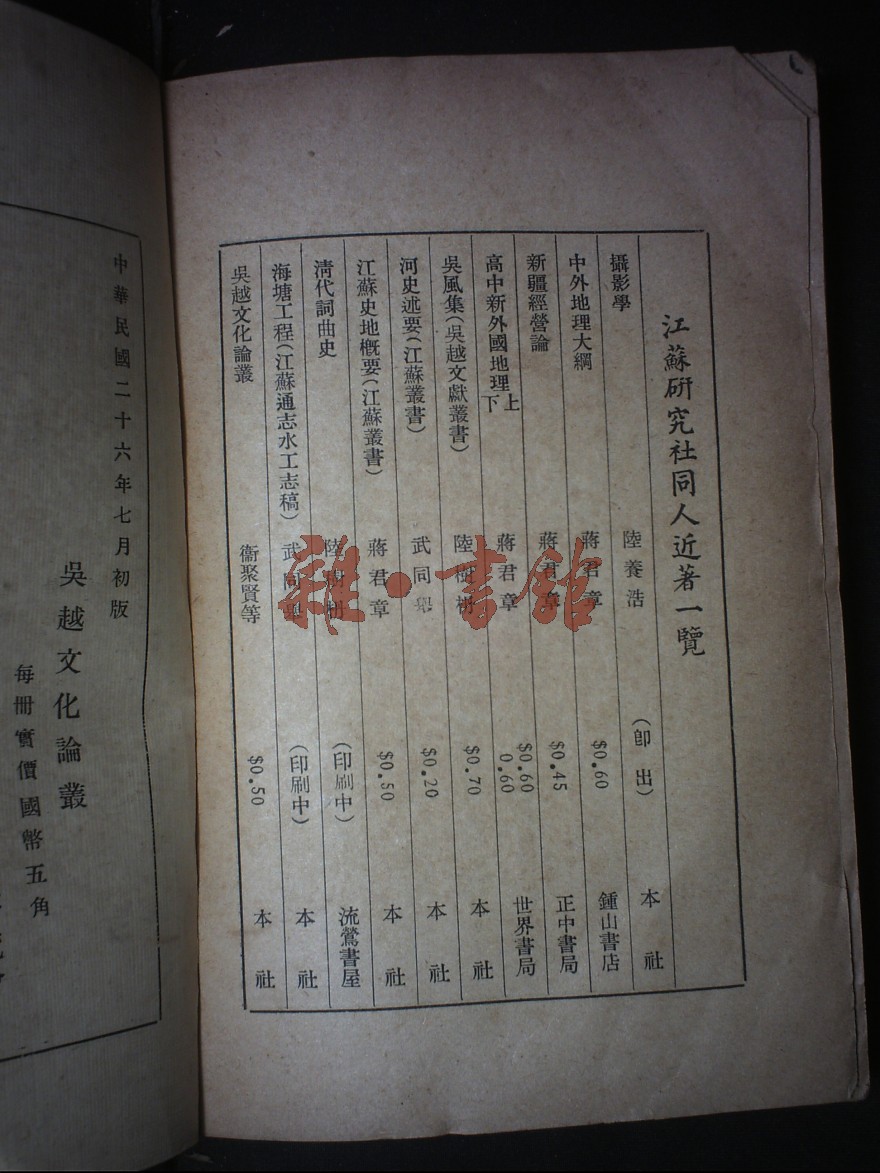 江蘇研究社同人近著一覽
攝影學 陸養浩 (卽出) 本社
中外地理大綱 蔣君章 $0.60 鍾山書店
新疆經營論 蔣君章 $0.45 正中書局
高中新外國地理上下 蔣君章 $0.60 0.60 世界書局
吳風集(吳越文獻叢書) 陸樹枬 $0.70 本社
河史述要(江蘇叢書) 武同舉 $0.20 本社
江蘇史地概要(江蘇叢書) 蔣君章 $0.50 本社
淸代詞曲史 陸樹枬 (印刷中) 流鶯書屋
海塘工程(江蘇通志水工志稿) 武同舉 (印刷中) 本社
吳越文化論叢 衞聚賢等 $0.50 本社
中華民國二十六年七月初版
吳越文化論叢
每冊實價國幣五角
雜·書館